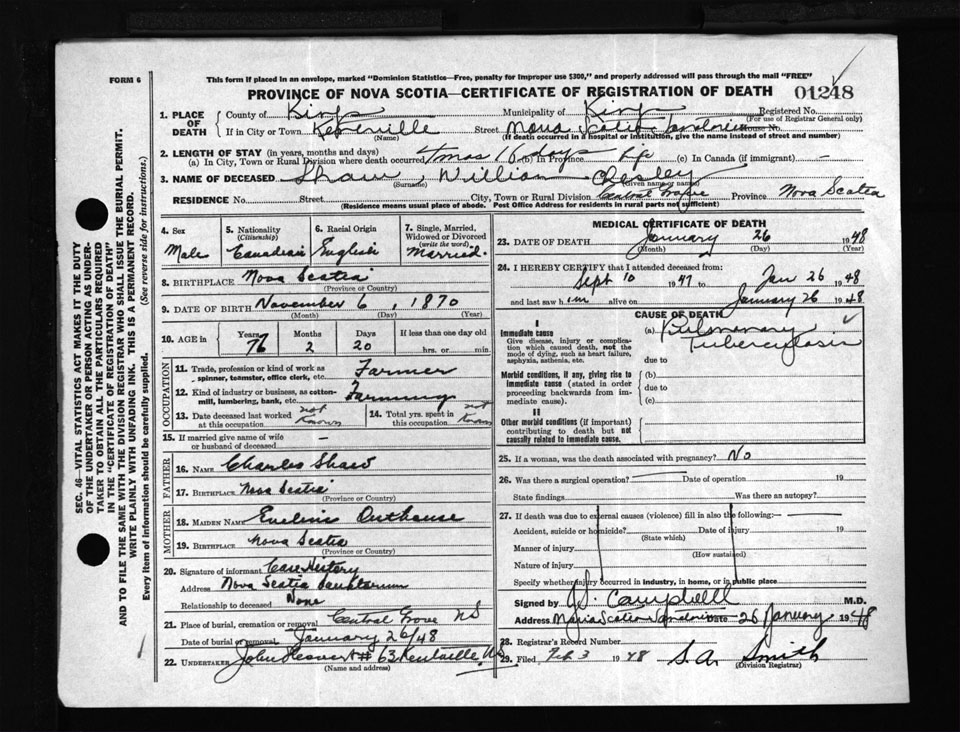 FORM 6
This form if placed in an envelope, marked "Dominion Statistics—Free, penalty for improper use $300," and properly addressed will pass through the mail "FREE"
PROVINCE OF NOVA SCOTIA—CERTIFICATE OF REGISTRATION OF DEATH 01248
1. PLACE OF DEATH
County of Kings Municipality of Kings Registered No.
(For use of Registrar General only)
If in City or Town Kentville Street Nova Scotia Sanatorium House No.
(Name) (If death occurred in a hospital or institution, give the name instead of street and number)
2. LENGTH OF STAY (in years, months and days)
(a) In City, Town or Rural Division where death occurred 4 mos 16 days (b) In Province life (c) In Canada (if immigrant) —
3. NAME OF DECEASED Shaw, William Chesley
(Surname) (Given name or names)
RESIDENCE No. Street City, Town or Rural Division Central Grove Province Nova Scotia
(Residence means usual place of abode. Post Office Address for residents in rural parts not sufficient)
4. Sex Male
5. Nationality (Citizenship) Canadian
6. Racial Origin English
7. Single, Married, Widowed or Divorced (write the word) Married.
8. BIRTHPLACE Nova Scotia
(Province or Country)
9. DATE OF BIRTH November 6, 1870
(Month) (Day) (Year)
10. AGE in Years 76 Months 2 Days 20 If less than one day hrs. or min.
OCCUPATION
11. Trade, profession or kind of work as spinner, teamster, office clerk, etc. Farmer
12. Kind of industry or business, as cotton-mill, lumbering, bank, etc. Farming
13. Date deceased last worked at this occupation not known
14. Total yrs. spent in this occupation not known
15. If married give name of wife or husband of deceased —
FATHER
16. NAME Charles Shaw
17. BIRTHPLACE Nova Scotia
(Province or Country)
MOTHER
18. MAIDEN NAME Eveline Outhouse
19. BIRTHPLACE Nova Scotia
(Province or Country)
20. Signature of informant Case History
Address Nova Scotia Sanatorium
Relationship to deceased None
21. Place of burial, cremation or removal Central Grove NS
Date of burial or removal January 26/48
22. UNDERTAKER John # 63 Kentville, NS
(Name and address)
MEDICAL CERTIFICATE OF DEATH
23. DATE OF DEATH January 26 1948
(Month) (Day) (Year)
24. I HEREBY CERTIFY that I attended deceased from
Sept 10 1947 to Jan 26 1948
and last saw him alive on January 26 1948
CAUSE OF DEATH
I
Immediate cause
Give disease, injury or complication which caused death, not the mode of dying, such as heart failure, asphyxia, asthenia, etc.
(a) Pulmonary Tuberculosis
due to
Morbid conditions, if any, giving rise to immediate cause (stated in order proceeding backwards from immediate cause)
(b)
due to
(c)
II
Other morbid conditions (if important) contributing to death but not causally related to immediate cause.
25. If a woman, was the death associated with pregnancy? No
26. Was there a surgical operation? — Date of operation 19
State findings Was there an autopsy?
27. If death was due to external causes (violence) fill in also the following:—
Accident, suicide or homicide? Date of injury 19
(State which)
Manner of injury
(How sustained)
Nature of injury
Specify whether injury occurred in industry, in home, or in public place
Signed by J.J. Campbell M.D.
Address Nova Scotia Sanatorium Date 26 January 1948
28. Registrar's Record Number
29. Filed Feb 3 1948 S.A. Smith
(Division Registrar)
SEC. 46—VITAL STATISTICS ACT MAKES IT THE DUTY
OF THE UNDERTAKER OR PERSON ACTING AS UNDER-
TAKER TO OBTAIN ALL THE PARTICULARS REQUIRED
IN THE "CERTIFICATE OF REGISTRATION OF DEATH"
AND TO FILE THE SAME WITH THE DIVISION REGISTRAR WHO SHALL ISSUE THE BURIAL PERMIT.
WRITE PLAINLY WITH UNFADING INK. THIS IS A PERMANENT RECORD.
Every item of information should be carefully supplied. (See reverse side for instructions.)